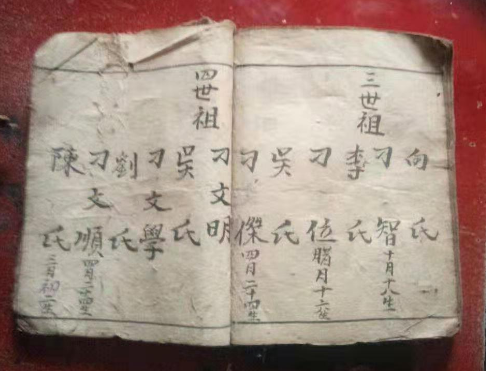 三世祖
向氏
刁智十月十八生
李氏
刁位臘月十生
吳氏
刁傑四月二十四生
四世祖
刁文明
吳氏
刁文學
劉氏
刁文順四月二十四生
陳氏三月初二生